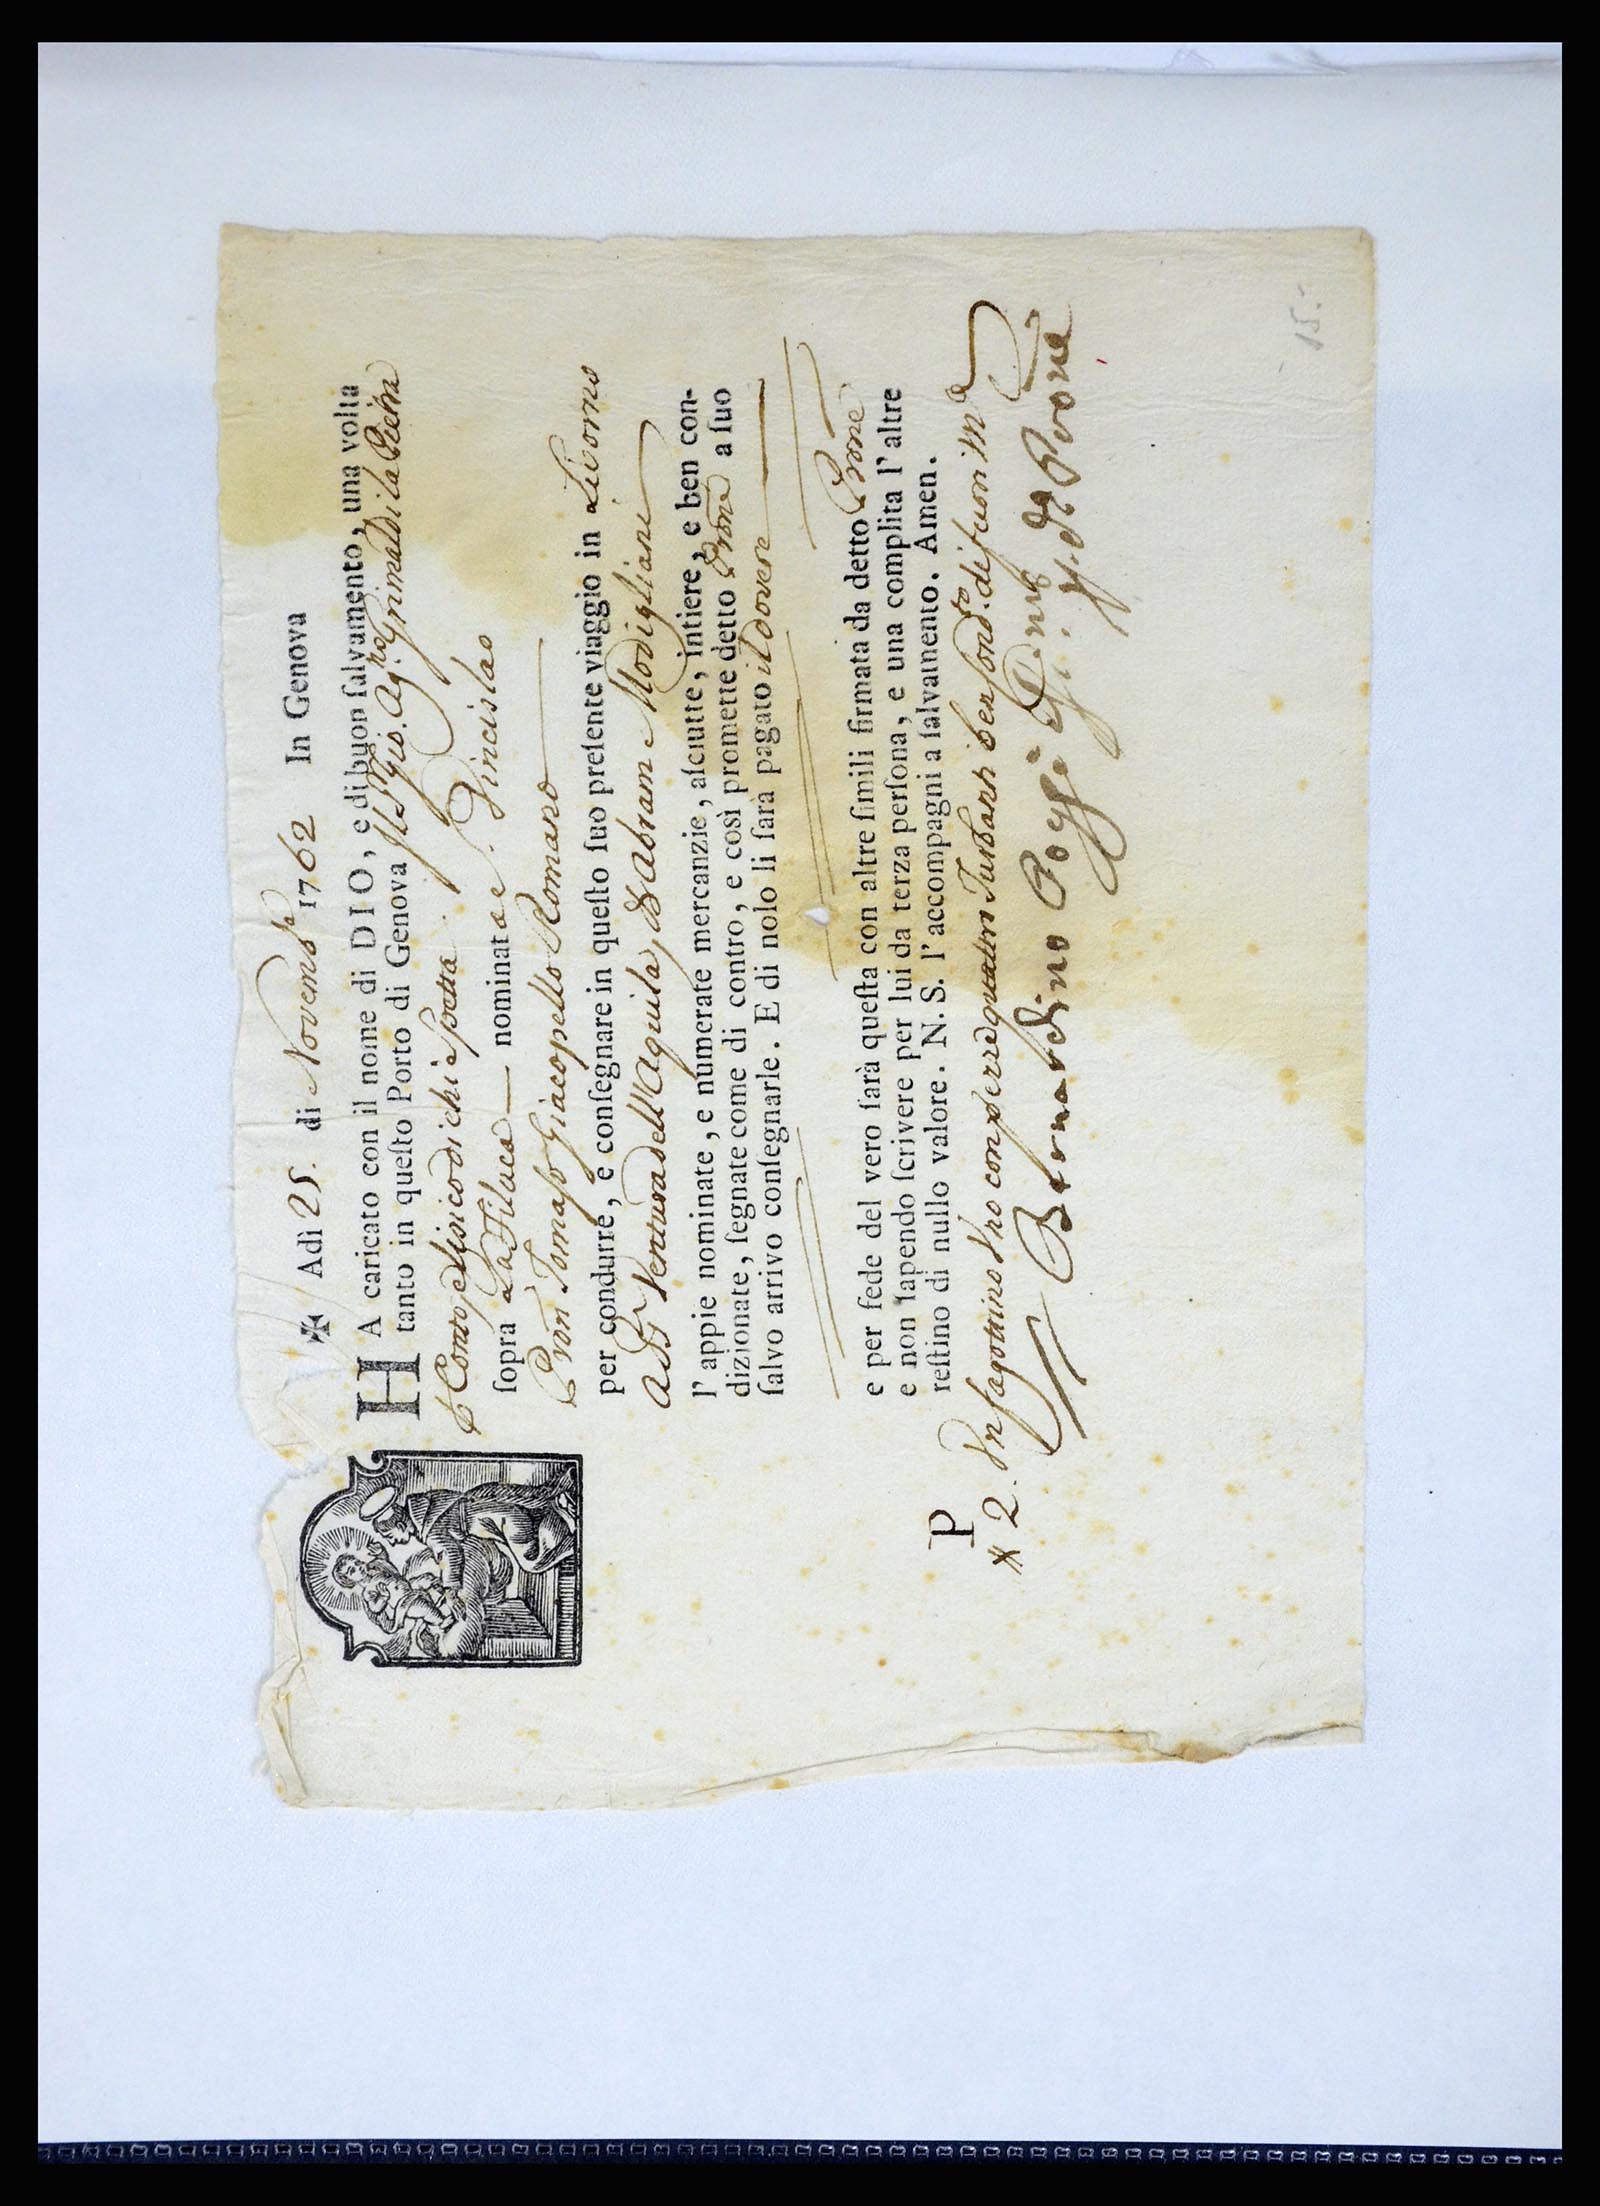 ✠ Adì 25. di Novemb.e 1762 In Genova
HA caricato con il nome di DIO, e di buon ſalvamento, una volta
tanto in queſto Porto di Genova Il Sig. Gio. Ag.no Grimaldi la Pietra
Conto e Risico di chi Spetta
ſopra La Filuca nominata S. Vincislao
Pron Tomaso Giacopello Romano
per condurre, e conſegnare in queſto ſuo preſente viaggio in Livorno
a Ventura dell'Aquila, & Abram Modigliani
l'appiè nominate, e numerate mercanzie, aſciutte, intiere, e ben con-
dizionate, ſegnate come di contro, e così promette detto Prone a ſuo
ſalvo arrivo conſegnarle. E di nolo li ſarà pagato il dovere
e per fede del vero ſarà queſta con altre ſimili firmata da detto Prone
e non ſapendo ſcrivere per lui da terza perſona, e una complita l'altre
reſtino di nullo valore. N. S. l'accompagni a ſalvamento. Amen.
P
2. Un fagottino con quattro Turbanti ben cond.to di fuori
Bernardino Poggi
15.